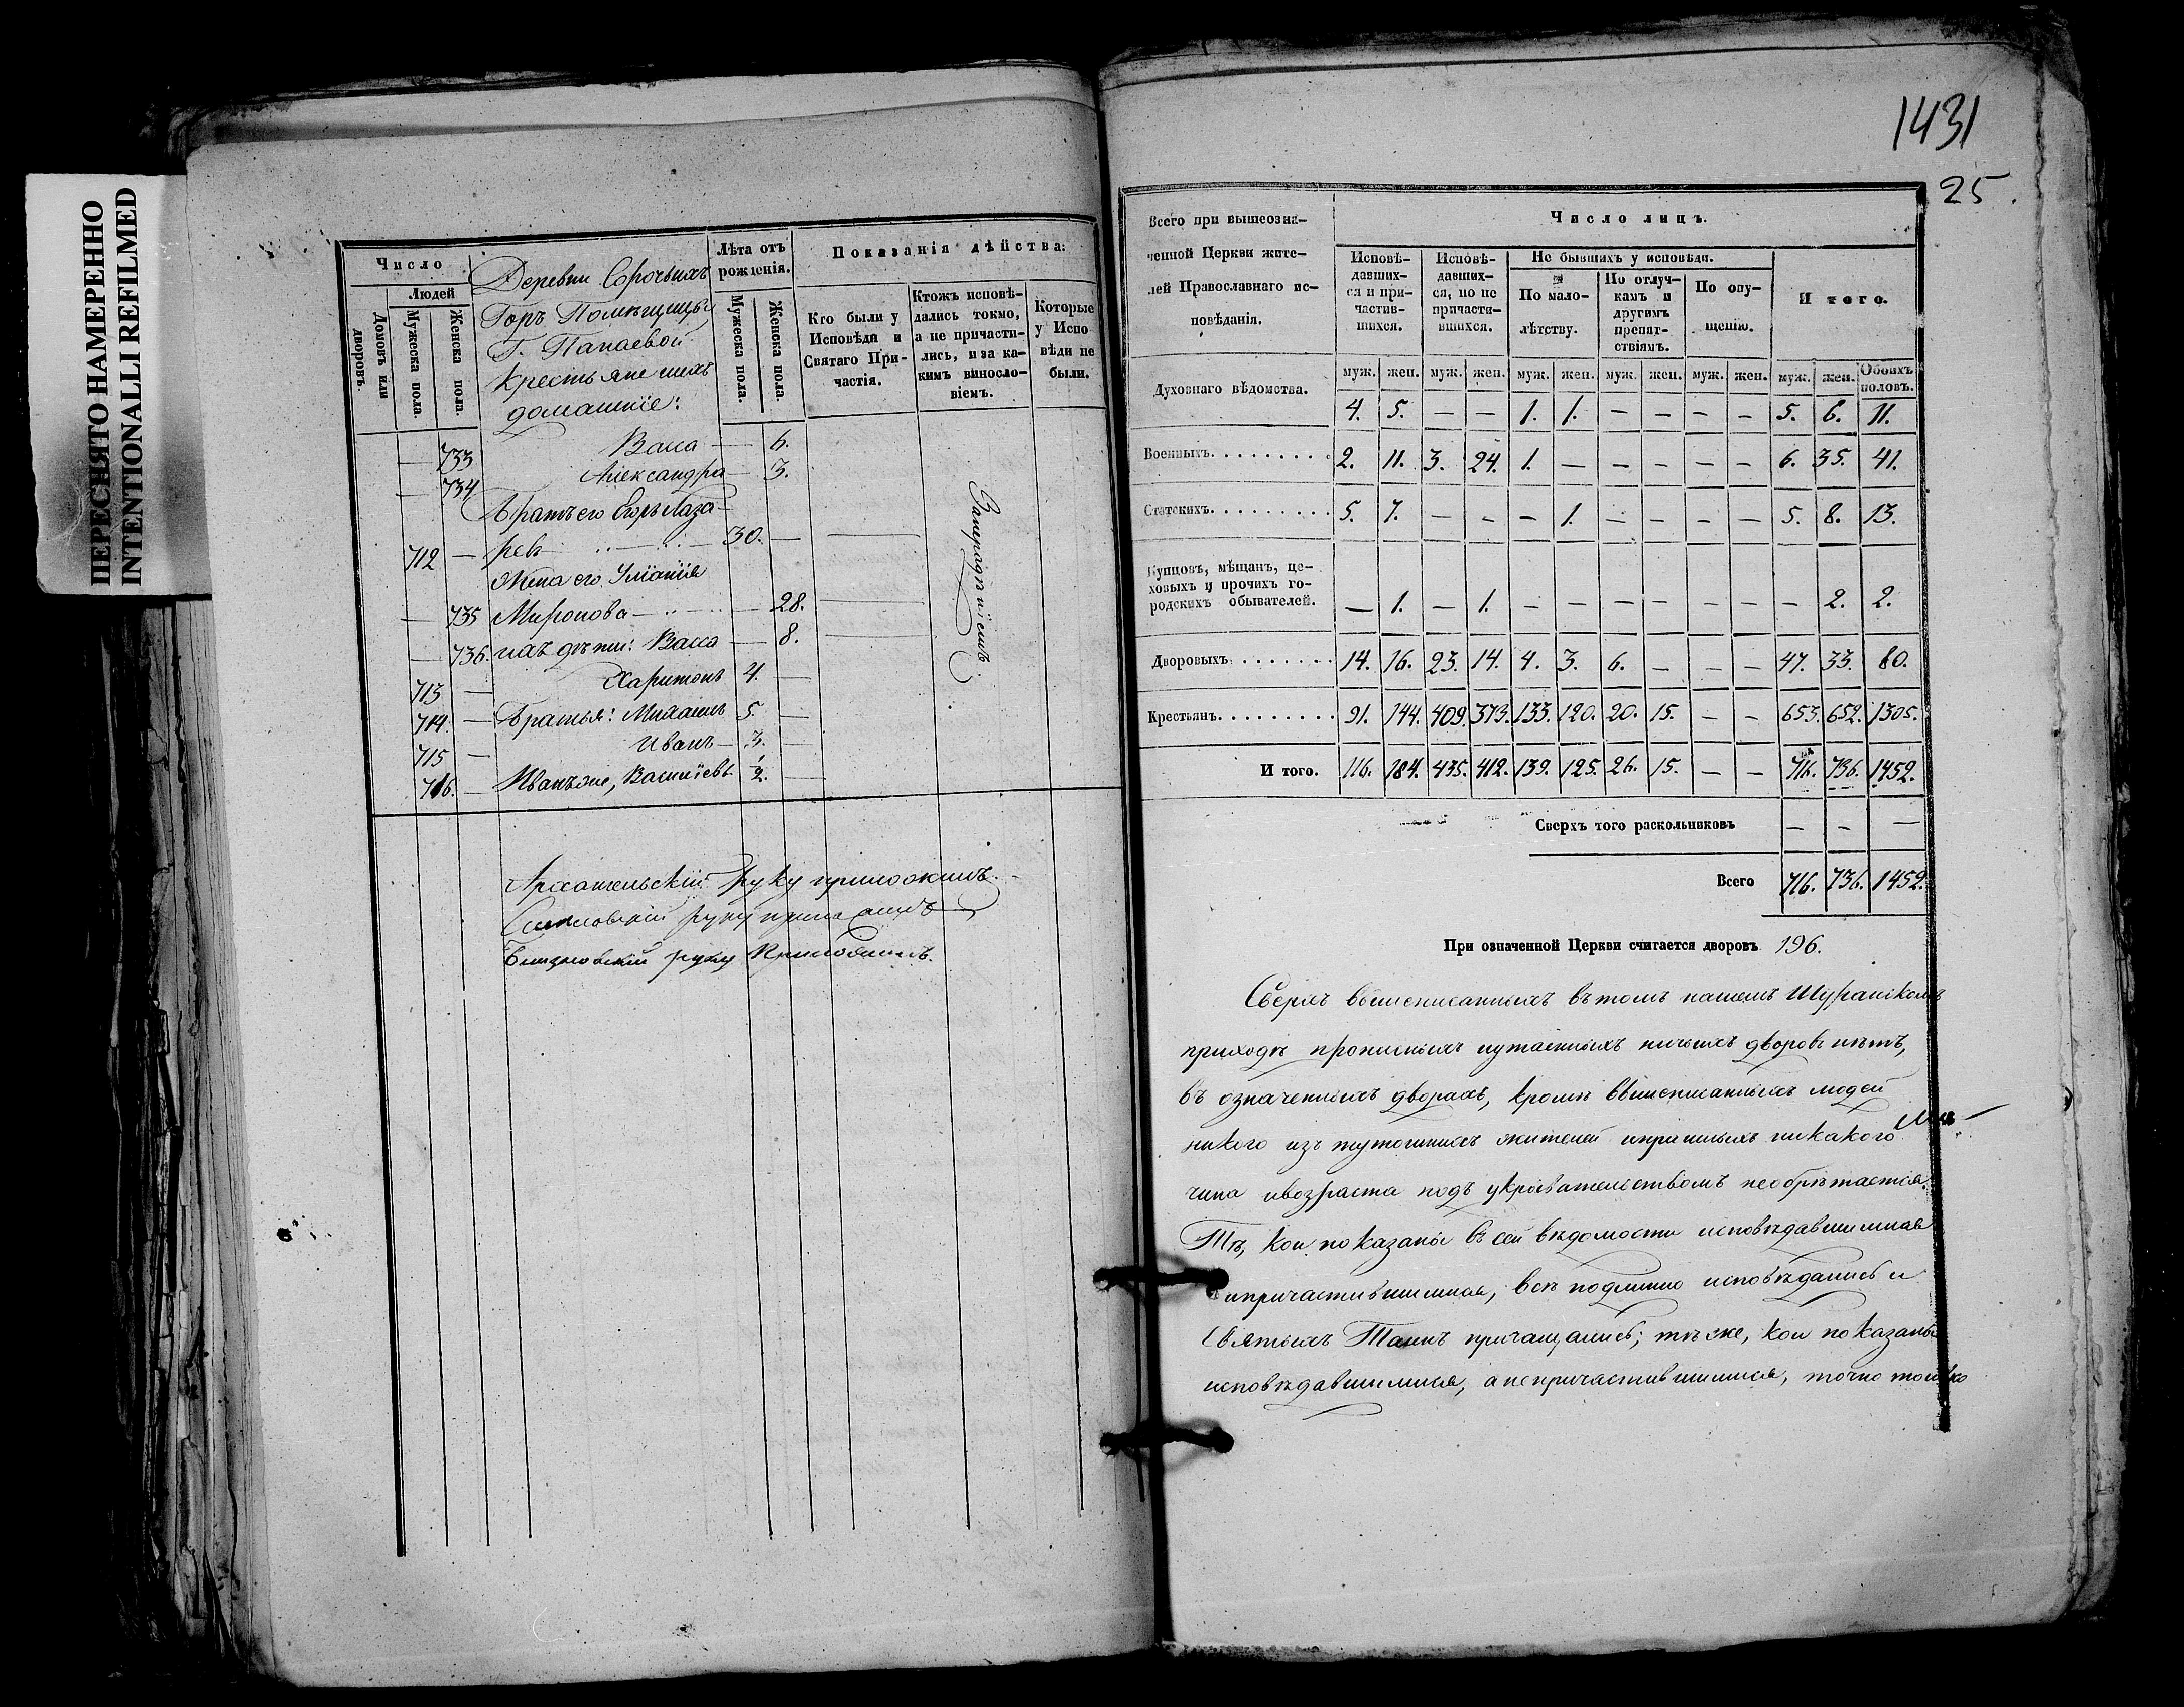 ПЕРЕСНЯТО НАМЕРЕННО
INTENTIONALLI REFILMED
Число
Людей
Домовъ или дворовъ.
Мужеска пола.
Женска пола.
Деревни Сорочьихъ
Горъ Помѣщицы
Г. Панаевой
крестьяне и ихъ
домашніе:
Лѣта отъ рожденія.
Мужеска пола.
Женска пола.
Показанія дѣйства:
Кто были у Исповѣди и Святаго Причастія.
Ктожъ исповѣдались токмо, а не причастились, и за какимъ винословіемъ.
Которые у Исповѣди не были.
— 733 Васса — 6.
— 734 Александра — 3.
Братъ его Егоръ Лаза-
712 — ревъ 30. —
Жена его Уліанія
— 735 Миронова — 28.
— 736. ихъ дѣти: Васса — 8.
713 — Харитонъ 4. —
714. — Братья: Михаилъ 5. —
715 — Иванъ — 3. —
716. — Иванъ же, Василіевъ 1/2. —
Архангельскій руку приложилъ.
руку приложилъ
руку приложилъ.
1431
25.
Всего при вышеозна-
ченной Церкви жите-
лей Православнаго ис-
повѣданія.
Число лицъ.
Исповѣ-давших-ся и при-частив-шихся.
Исповѣ-давших-ся, но не причасти-вшихся.
Не бывшихъ у исповѣди.
По мало-лѣтству.
По отлуч-камъ и другимъ препят-ствіямъ.
По опу-щенію.
И того.
муж. жен. муж. жен. муж. жен. муж. жен. муж. жен. муж. жен. Обоихъ половъ.
Духовнаго вѣдомства. 4. 5. — — 1. 1. — — — — 5. 6. 11.
Военныхъ. 2. 11. 3. 24. 1. — — — — — 6. 35. 41.
Статскихъ. 5. 7. — — — 1. — — — — 5. 8. 13.
Купцовъ, мѣщанъ, це-
ховыхъ и прочихъ го-
родскихъ обывателей. — 1. — 1. — — — — — — — 2. 2.
Дворовыхъ. 14. 16. 23. 14. 4. 3. 6. — — — 47. 33. 80.
Крестьянъ. 91. 144. 409. 373. 133. 120. 20. 15. — — 653. 652. 1305.
И того. 116. 184. 435. 412. 139. 125. 26. 15. — — 716. 736. 1452.
Сверхъ того раскольниковъ — — —
Всего 716. 736. 1452.
При означенной Церкви считается дворовъ 196.
Сверхъ вышеписанныхъ въ томъ нашемъ Шуранскомъ
приходѣ прописныхъ и утаенныхъ ничьихъ дворовъ нѣтъ,
въ означенныхъ дворахъ, кромѣ вышеписанныхъ людей
никого изъ тутошнихъ жителей и пришлыхъ никакого
чина и возраста подъ укрывательствомъ не обрѣтается.
Тѣ, кои показаны въ сей вѣдомости исповѣдавшимися
и причастившимися, всѣ подлинно исповѣдались и
Святыхъ Таинъ причащались; тѣ же, кои показаны
исповѣдавшимися, а не причастившимися, точно только